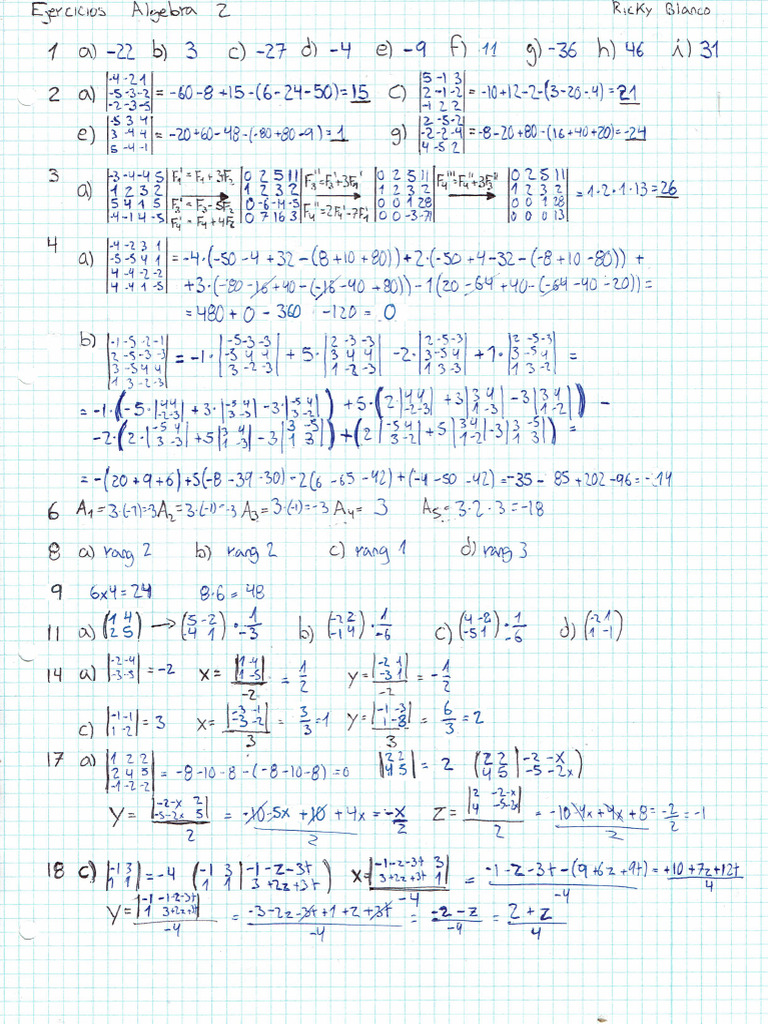 Ejercicios Algebra 2 Ricky Blanco
1 a) -22 b) 3 c) -27 d) -4 e) -9 f) 11 g) -36 h) 46 i) 31
2 a) |-4 -2 1; -5 -3 -2; -2 -3 -5| = -60-8+15-(6-24-50)=15 c) |5 -1 3; 2 -1 -2; -1 2 2| = -10+12-2-(3-20-4)=21
e) |-5 3 4; 3 -4 4; 5 -4 -1| = -20+60-48-(-80+80-9)=1 g) |2 -5 -2; -2 -2 -4; 4 -5 2| = -8-20+80-(16+40+20)=-24
3 a) |-3 -4 -4 5; 1 2 3 2; 5 4 1 5; -4 -1 4 -5| F1'=F1+3F2 F3'=F3-5F2 F4'=F4+4F2 → |0 2 5 11; 1 2 3 2; 0 -6 -14 -5; 0 7 16 3| F3''=F3'+3F1' F4''=2F4'-7F1' → |0 2 5 11; 1 2 3 2; 0 0 1 28; 0 0 -3 -71| F4'''=F4''+3F3'' → |0 2 5 11; 1 2 3 2; 0 0 1 28; 0 0 0 13| = 1·2·1·13=26
4 a) |-4 -2 3 1; -5 -5 4 1; 4 -4 -2 -2; 4 -4 1 -5| = -4·(-50-4+32-(8+10+80))+2·(-50+4-32-(-8+10-80)) +
+3·(-80-16+40-(-16-40+80))-1(20-64+40-(-64-40-20))=
= 480+0-360 -120=0
b) |-1 -5 -2 -1; 2 -5 -3 -3; 3 -5 4 4; 1 3 -2 -3| = -1·|-5 -3 -3; -5 4 4; 3 -2 -3| + 5·|2 -3 -3; 3 4 4; 1 -2 -3| -2·|2 -5 -3; 3 -5 4; 1 3 -3| + 1·|2 -5 -3; 3 -5 4; 1 3 -2| =
= -1·(-5·|4 4; -2 -3|+3·|-5 4; 3 -3|-3·|-5 4; 3 -2|) +5·(2·|4 4; -2 -3|+3|3 4; 1 -3|-3|3 4; 1 -2|) -
-2·(2·|-5 4; 3 -3|+5|3 4; 1 -3|-3|3 -5; 1 3|)+(2|-5 4; 3 -2|+5|3 4; 1 -2|-3|3 -5; 1 3|) =
= -(20+9+6)+5(-8-39-30)-2(6-65-42)+(-4-50-42)=-35-85+202-96=-14
6 A1=3·(-1)=-3 A2=3·(-1)=-3 A3=3·(-1)=-3 A4= 3 A5=3·2·3=-18
8 a) rang 2 b) rang 2 c) rang 1 d) rang 3
9 6x4=24 8·6=48
11 a) (1 4; 2 5) → (5 -2; -4 1)·1/-3 b) (-2 2; -1 4)·1/-6 c) (4 -8; -5 1)·1/-6 d) (-2 1; 1 -1)
14 a) |-2 -4; -3 -5| = -2 x= |1 -4; 1 -5|/-2 = 1/2 y= |-2 1; -3 1|/-2 = -1/2
c) |-1 -1; 1 -2| = 3 x= |-3 -1; -3 -2|/3 = 3/3=1 y= |-1 -3; 1 -3|/3 = 6/3=2
17 a) |1 2 2; 2 4 5; -1 -2 -2| = -8-10-8-(-8-10-8)=0 |2 2; 4 5| = 2 (2 2; 4 5 | -2-x; -5-2x)
y= |-2-x 2; -5-2x 5|/2 = -10-5x+10+4x/2 = -x/2 z= |2 -2-x; 4 -5-2x|/2 = -10-4x+4x+8/2 = -2/2=-1
18 c) |-1 3; 1 1| = -4 (-1 3; 1 1 | -1-z-3t; 3+2z+3t) x= |-1-z-3t 3; 3+2z+3t 1|/-4 = -1-z-3t-(9+6z+9t)/-4 = +10+7z+12t/4
y= |-1 -1-z-3t; 1 3+2z+3t|/-4 = -3-2z-3t+1+z+3t/-4 = -2-z/-4 = 2+z/4